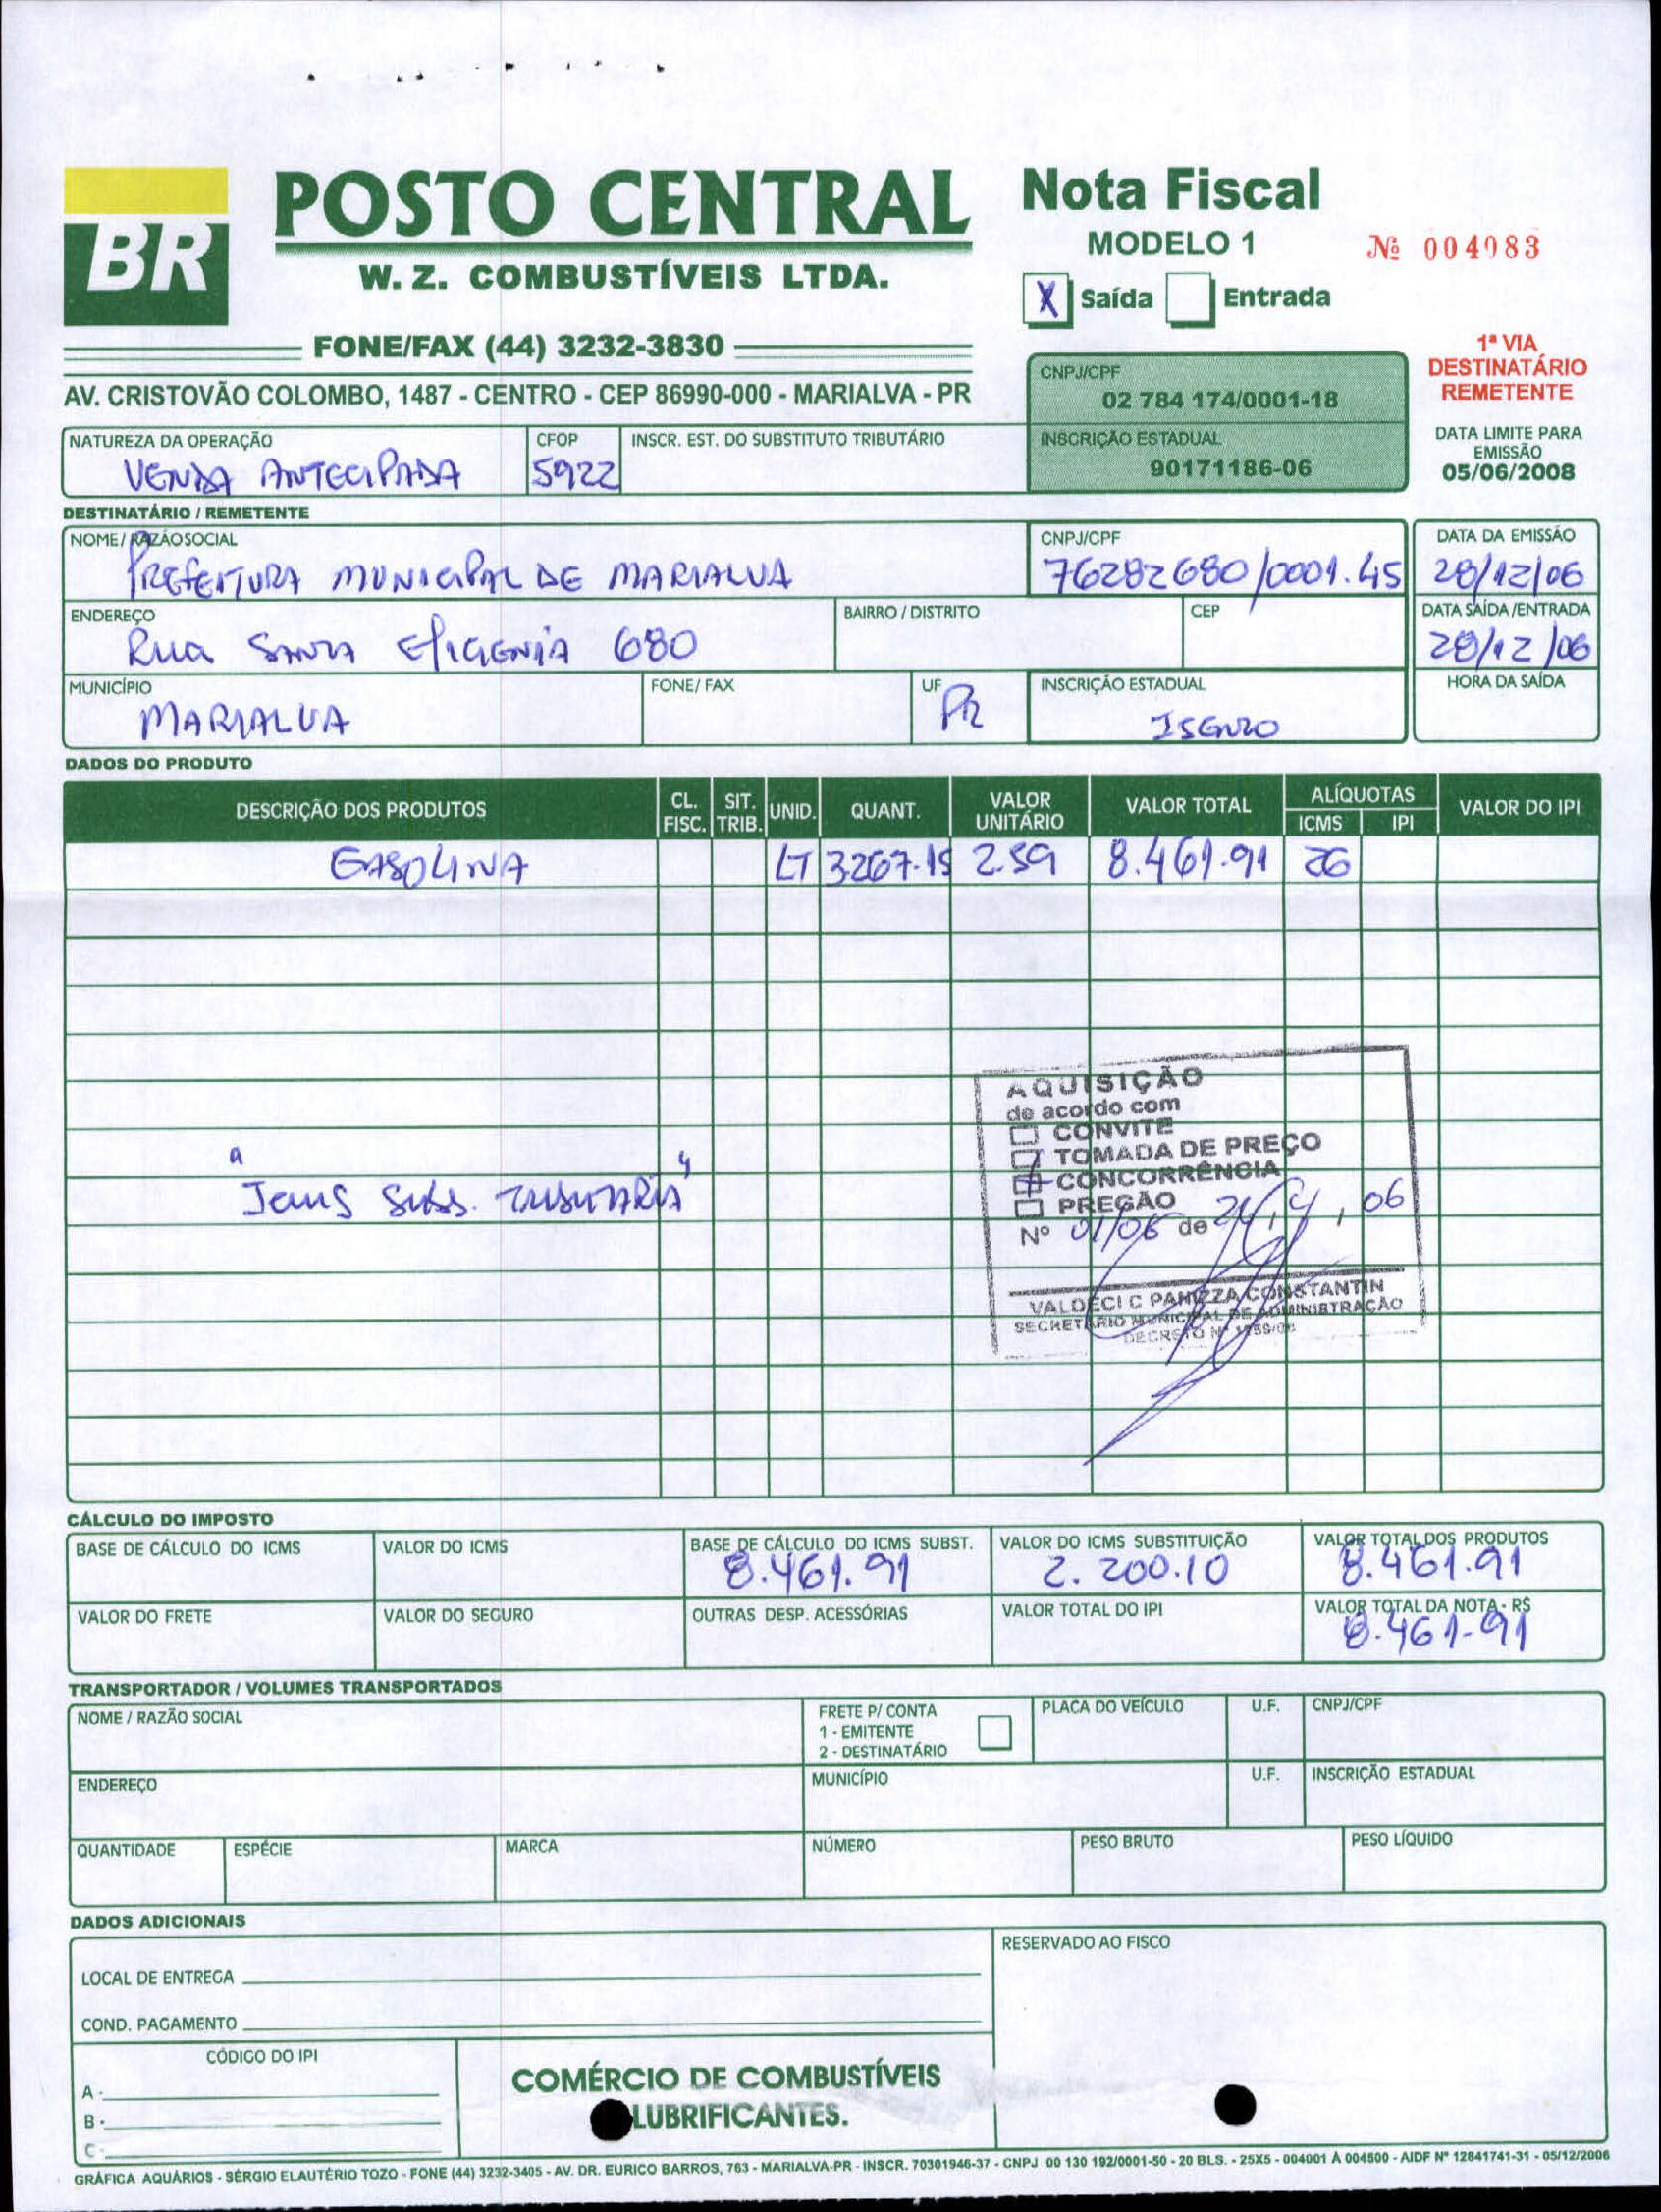 BR
POSTO CENTRAL
W. Z. COMBUSTÍVEIS LTDA.
FONE/FAX (44) 3232-3830
AV. CRISTOVÃO COLOMBO, 1487 - CENTRO - CEP 86990-000 - MARIALVA - PR
Nota Fiscal
MODELO 1
Nº 004083
X Saída Entrada
1ª VIA
DESTINATÁRIO
REMETENTE
CNPJ/CPF
02 784 174/0001-18
INSCRIÇÃO ESTADUAL
90171186-06
DATA LIMITE PARA
EMISSÃO
05/06/2008
NATUREZA DA OPERAÇÃO CFOP INSCR. EST. DO SUBSTITUTO TRIBUTÁRIO
VENDA ANTECIPADA 5922
DESTINATÁRIO / REMETENTE
NOME / RAZÃO SOCIAL CNPJ/CPF DATA DA EMISSÃO
PREFEITURA MUNICIPAL DE MARIALVA 76282680/0001.45 28/12/06
ENDEREÇO BAIRRO / DISTRITO CEP DATA SAÍDA/ENTRADA
Rua SANTA EFIGENIA 680 28/12/06
MUNICÍPIO FONE/ FAX UF INSCRIÇÃO ESTADUAL HORA DA SAÍDA
MARIALVA PR ISENTO
DADOS DO PRODUTO
DESCRIÇÃO DOS PRODUTOS CL. FISC. SIT. TRIB. UNID. QUANT. VALOR UNITÁRIO VALOR TOTAL ALÍQUOTAS ICMS IPI VALOR DO IPI
GASOLINA LT 3267.15 2.59 8.461.91 26
AQUISIÇÃO
de acordo com
CONVITE
TOMADA DE PREÇO
CONCORRÊNCIA
PREGÃO
Nº 01/06 de 06
VALDECI C PANIZZA CONSTANTIN
SECRETÁRIO MUNICIPAL DE ADMINISTRAÇÃO
DECRETO Nº
"Icms Subs. TRIBUTARIA"
CÁLCULO DO IMPOSTO
BASE DE CÁLCULO DO ICMS VALOR DO ICMS BASE DE CÁLCULO DO ICMS SUBST. VALOR DO ICMS SUBSTITUIÇÃO VALOR TOTAL DOS PRODUTOS
8.461.91 2.200.10 8.461.91
VALOR DO FRETE VALOR DO SEGURO OUTRAS DESP. ACESSÓRIAS VALOR TOTAL DO IPI VALOR TOTAL DA NOTA - R$
8.461.91
TRANSPORTADOR / VOLUMES TRANSPORTADOS
NOME / RAZÃO SOCIAL FRETE P/ CONTA PLACA DO VEÍCULO U.F. CNPJ/CPF
1 - EMITENTE
2 - DESTINATÁRIO
ENDEREÇO MUNICÍPIO U.F. INSCRIÇÃO ESTADUAL
QUANTIDADE ESPÉCIE MARCA NÚMERO PESO BRUTO PESO LÍQUIDO
DADOS ADICIONAIS
RESERVADO AO FISCO
LOCAL DE ENTREGA
COND. PAGAMENTO
CÓDIGO DO IPI
A -
B -
C -
COMÉRCIO DE COMBUSTÍVEIS
LUBRIFICANTES.
GRÁFICA AQUÁRIOS - SÉRGIO ELAUTÉRIO TOZO - FONE (44) 3232-3405 - AV. DR. EURICO BARROS, 763 - MARIALVA-PR - INSCR. 70301946-37 - CNPJ 00 130 192/0001-50 - 20 BLS. - 25X5 - 004001 À 004500 - AIDF Nº 12841741-31 - 05/12/2006